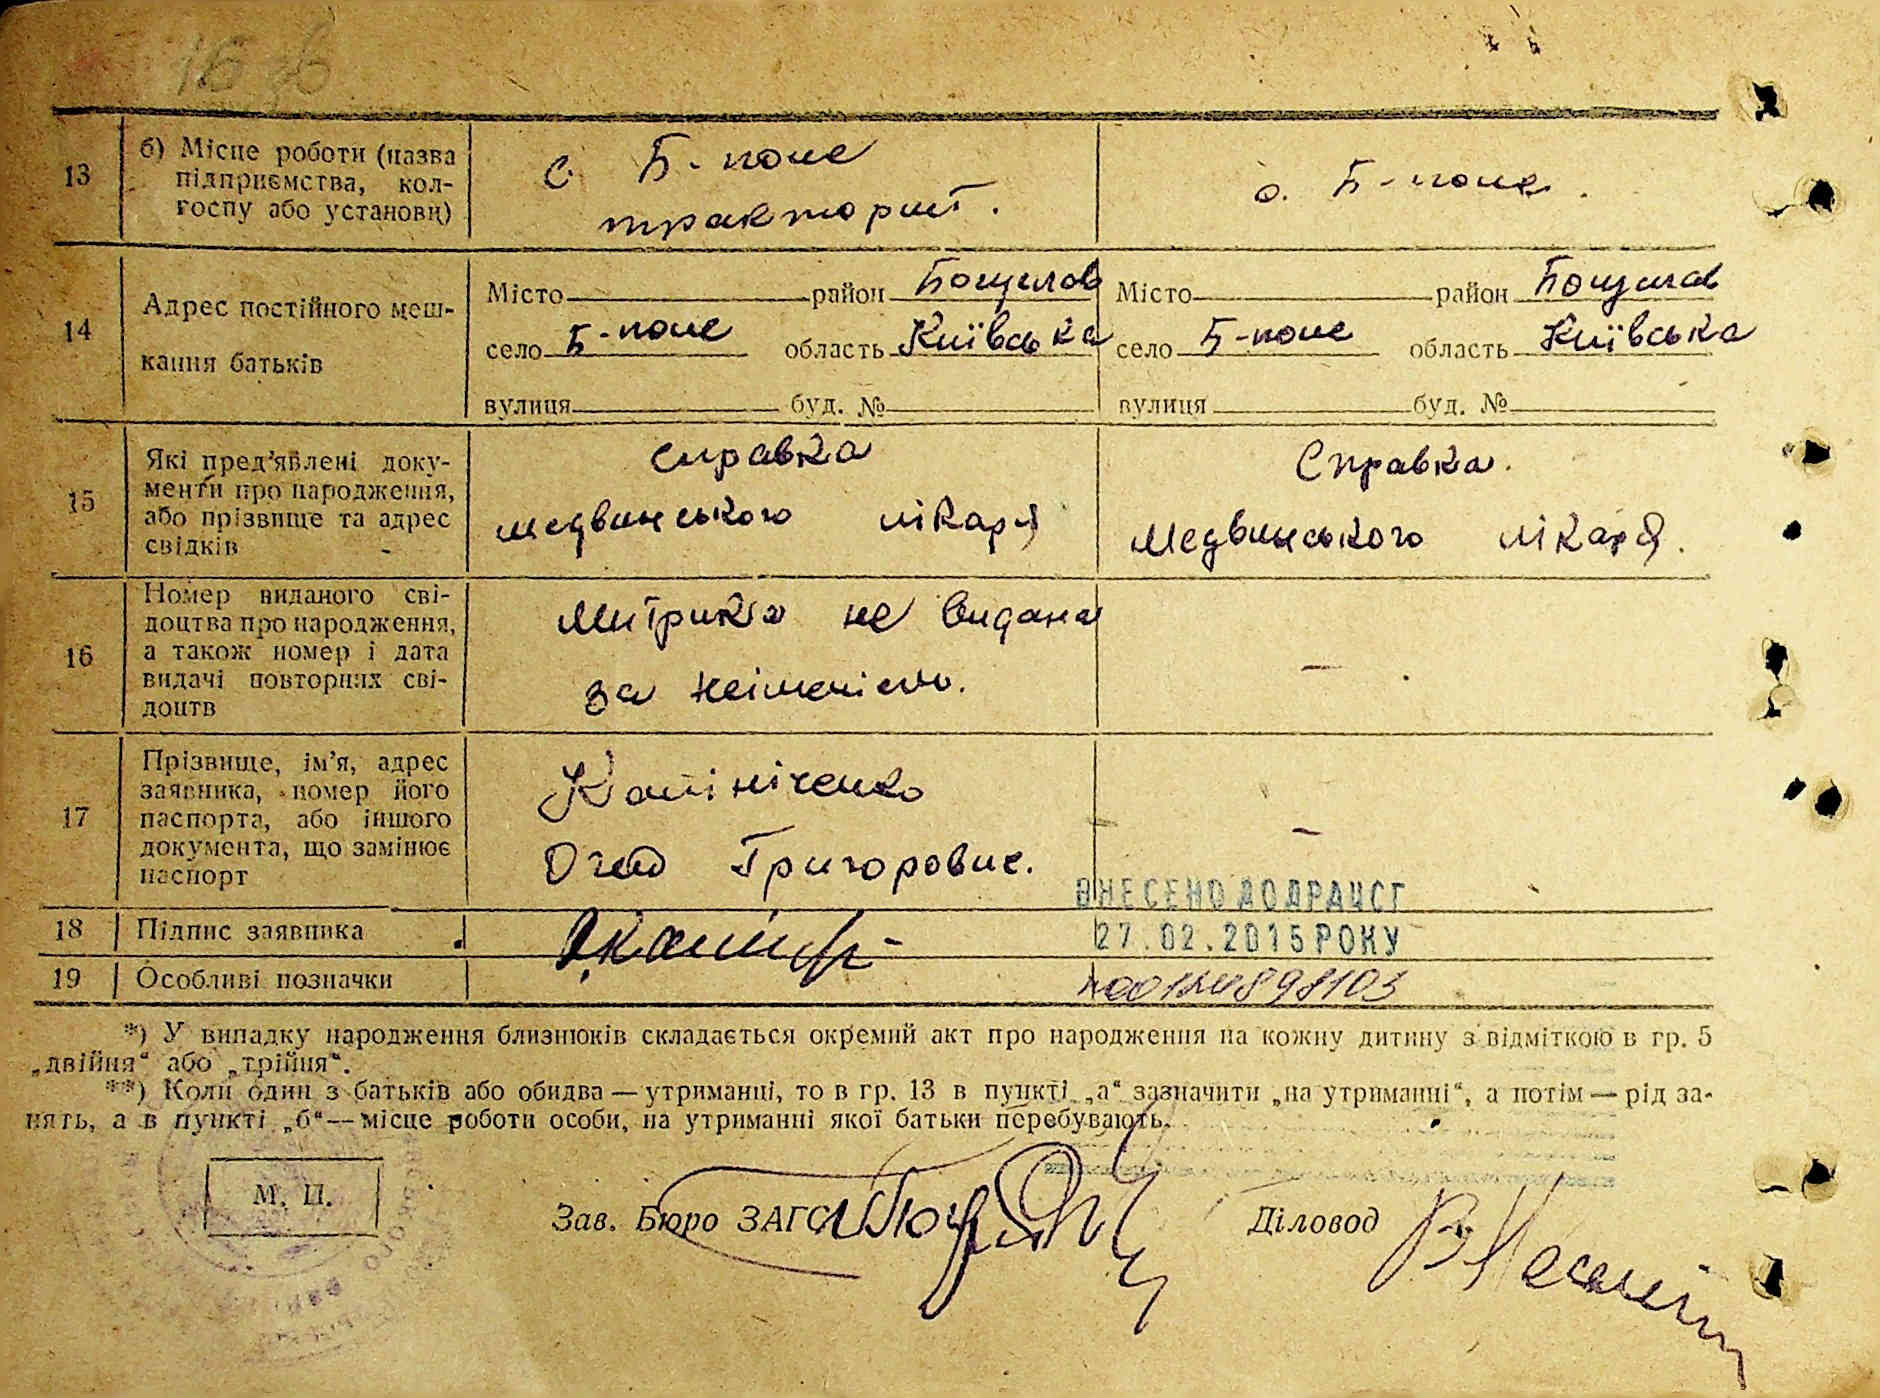 16 зв
13
б) Місце роботи (назва
підприємства, кол-
госпу або установи)
с. Б-поле
тракторист.
с. Б-поле.
14
Адрес постійного меш-
кання батьків
Місто район Богуслав
село Б-поле область Київська
вулиця буд. №
Місто район Богуслав
село Б-поле область Київська
вулиця буд. №
15
Які пред'явлені доку-
менти про народження,
або прізвище та адрес
свідків
справка
медвинського лікаря
Справка.
Медвинського лікаря.
16
Номер виданого сві-
доцтва про народження,
а також номер і дата
видачі повторних сві-
доцтв
Митрика не видана
за неімením.
—
17
Прізвище, ім'я, адрес
заявника, номер його
паспорта, або іншого
документа, що замінює
паспорт
Калініченко
Григорович.
—
ВНЕСЕНО ДО ДРАЦСГ
18
Підпис заявника
27.02.2015 РОКУ
19
Особливі позначки
*) У випадку народження близнюків складається окремий акт про народження на кожну дитину з відміткою в гр. 5
„двійня“ або „трійня“.
**) Коли один з батьків або обидва — утриманці, то в гр. 13 в пункті „а“ зазначити „на утриманні“, а потім — рід за-
нять, а в пункті „б“ — місце роботи особи, на утриманні якої батьки перебувають.
М. П.
Зав. Бюро ЗАГС
Діловод